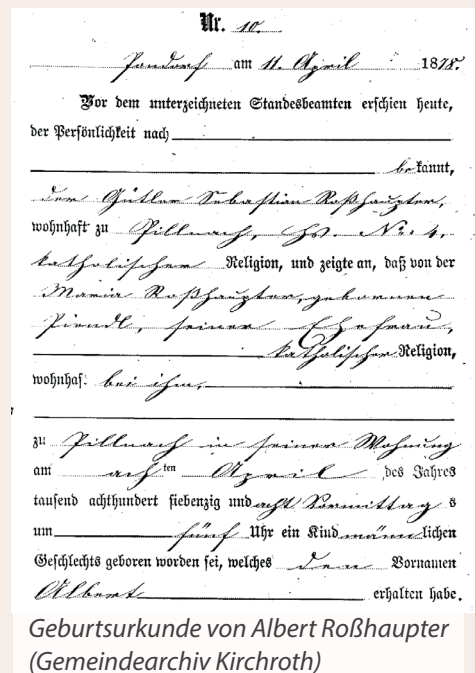 Nr. 10.
Pondorf am 11. April 1878.
Vor dem unterzeichneten Standesbeamten erschien heute,
der Persönlichkeit nach
bekannt,
der Gütler Sebastian Roßhaupter,
wohnhaft zu Pillnach, Hs. No. 4,
katholischer Religion, und zeigte an, daß von der
Maria Roßhaupter, gebornen
Piendl, seiner Ehefrau,
katholischer Religion,
wohnhaf: bei ihm,
zu Pillnach in seiner Wohnung
am achten April des Jahres
tausend achthundert siebenzig und acht Vormittags
um fünf Uhr ein Kind männlichen
Geschlechts geboren worden sei, welches den Vornamen
Albert erhalten habe.
Geburtsurkunde von Albert Roßhaupter
(Gemeindearchiv Kirchroth)